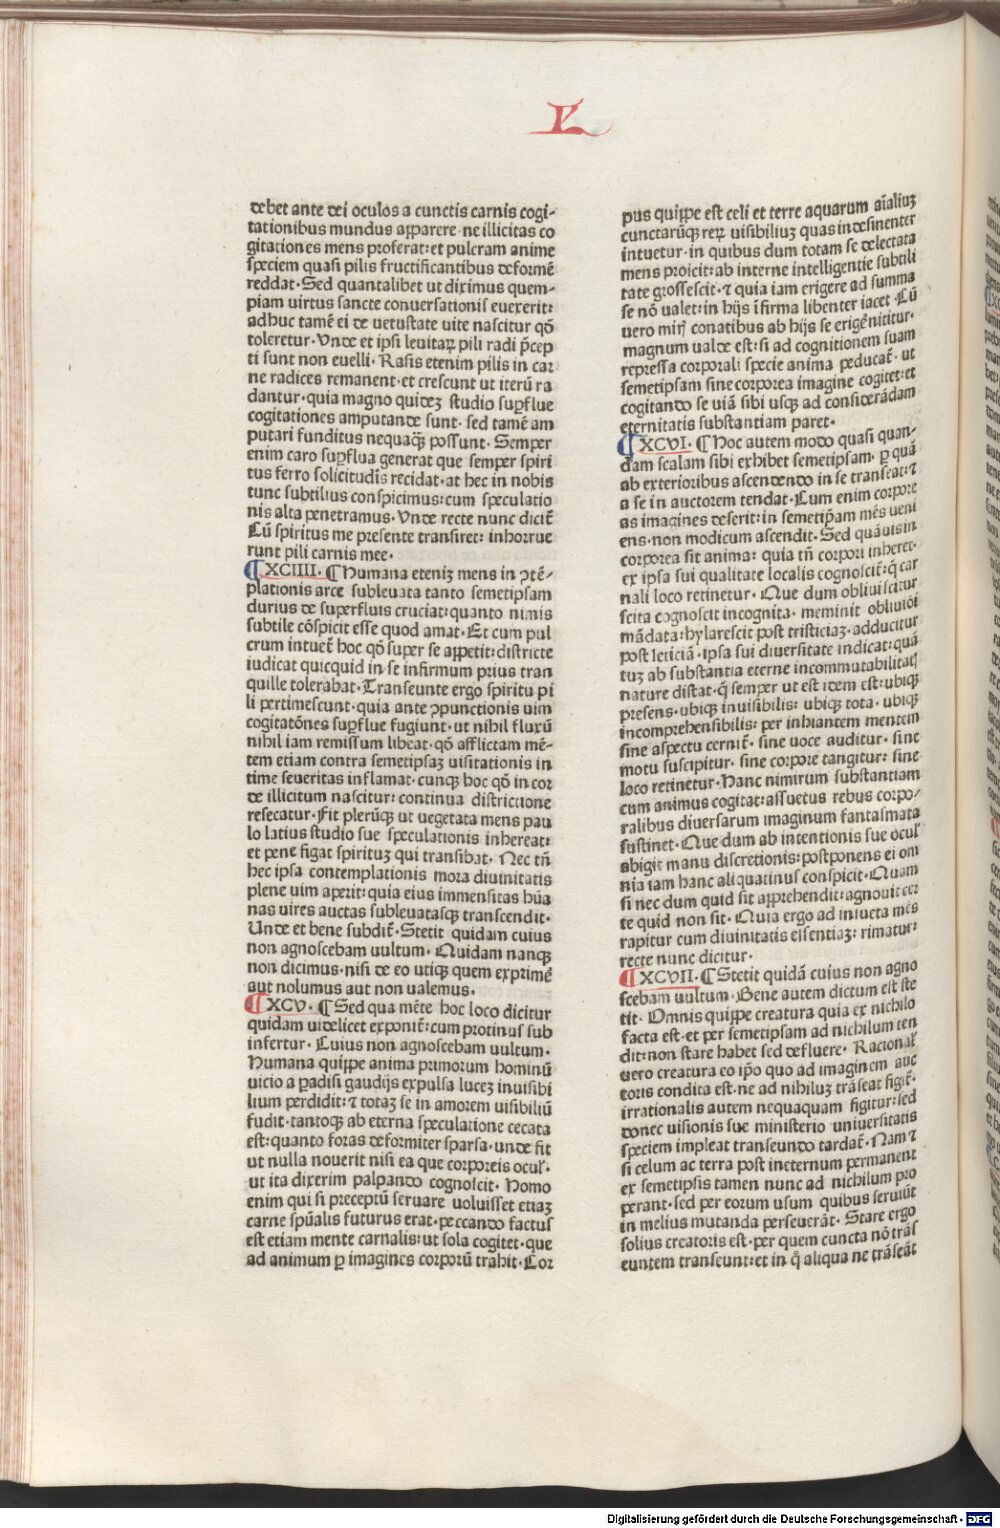 L
debet ante dei oculos a cunctis carnis cogi-
tationibus mundus apparere· ne illicitas co
gitationes mens proferat: et pulcram anime
speciem quasi pilis fructificantibus deformē
reddat· Sed quantalibet ut diximus quem-
piam uirtus sancte conuersationis euexerit:
adhuc tamē ei de uetustate uite nascitur qō
toleretur· Unde et ipsi leuitaꝝ pili radi p̄cep
ti sunt non euelli· Rasis etenim pilis in car
ne radices remanent· et crescunt ut iterū ra
dantur· quia magno quidez studio suꝑflue
cogitationes amputande sunt· sed tamē am
putari funditus nequaq̄ possunt· Semper
enim caro suꝑflua generat que semper spiri
tus ferro solicitudīs recidat· at hec in nobis
tunc subtilius conspicimus: cum speculatio
nis alta penetramus· Unde recte nunc dicit̄
Cū spiritus me presente transiret: inhorrue
runt pili carnis mee·
¶ XCIIII· ¶ Humana eteniz mens in ꝯtē-
plationis arce subleuata tanto semetipsam
durius de superfluis cruciat: quanto nimis
subtile cōspicit esse quod amat· Et cum pul
crum intuet̄ hoc qō super se appetit: districte
iudicat quicquid in se infirmum prius tran
quille tolerabat· Transeunte ergo spiritu pi
li pertimescunt· quia ante ꝯpunctionis uim
cogitatōnes suꝑflue fugiunt· ut nihil fluxū
nihil iam remissum libeat· qō afflictam mē-
tem etiam contra semetipsaz uisitationis in
time seueritas inflamat· cunq̄ hoc qō in cor
de illicitum nascitur: continua districtione
resecatur· Fit plerūq̄ ut uegetata mens pau
lo latius studio sue speculationis inhereat:
et pene figat spirituz qui transibat· Nec tn̄
hec ipsa contemplationis mora diuinitatis
plene uim aperit: quia eius immensitas hūa
nas uires auctas subleuatasq̄ transcendit·
Unde et bene subdit̄· Stetit quidam cuius
non agnoscebam uultum· Quidam nanq̄
non dicimus· nisi de eo utiq̄ quem exprimē
aut nolumus aut non ualemus·
¶ XCV· ¶ Sed qua mēte hoc loco dicitur
quidam uidelicet exponit̄: cum protinus sub
infertur· Cuius non agnoscebam uultum·
Humana quippe anima primorum hominū
uicio a ꝑadisi gaudijs expulsa lucez inuisibi
lium perdidit: ⁊ totaz se in amorem uisibiliū
fudit· tantoq̄ ab eterna speculatione cecata
est: quanto foras deformiter sparsa· unde fit
ut nulla nouerit nisi ea que corporeis ocul̄·
ut ita dixerim palpando cognoscit· Homo
enim qui si preceptū seruare uoluisset etiaz
carne spūalis futurus erat· peccando factus
est etiam mente carnalis: ut sola cogitet· que
ad animum ꝑ imagines corporū trahit· Cor
pus quippe est celi et terre aquarum aīaliuz
cunctarūq̄ reꝝ uisibiliuz quas indesinenter
intuetur· in quibus dum totam se delectata
mens proicit: ab interne intelligentie subtili
tate grossescit· ⁊ quia iam erigere ad summa
se nō ualet: in hijs īfirma libenter iacet· Cū
uero mirꝭ conatibus ab hijs se erigē nititur·
magnum ualde est: si ad cognitionem suam
repressa corporali specie anima ꝑducat̄· ut
semetipsam sine corporea imagine cogitet: et
cogitando se uiā sibi usq̄ ad considerādam
eternitatis substantiam paret·
¶ XCVI· ¶ Hoc autem modo quasi quan-
dam scalam sibi exhibet semetipsam· ꝑ quā
ab exterioribus ascendendo in se transeat: ⁊
a se in auctorem tendat· Cum enim corpore
as imagines deserit: in semetip̄am mēs ueni
ens· non modicum ascendit· Sed quāuis in
corporea sit anima: quia tn̄ corpori inheret·
ex ipsa sui qualitate localis cognoscit̄: q̄ car
nali loco retinetur· Que dum obliuiscitur
scita cognoscit incognita· meminit obliuiōi
mādata: hylarescit post tristiciaz· adducitur
post leticiā· ipsa sui diuersitate indicat: quā
tuz ab substantia eterne incommutabilitatꝭ
nature distat· q̄ semper ut est idem est: ubiq̄
presens· ubiq̄ inuisibilis: ubiq̄ tota· ubiq̄
incomprehensibilis: per inhiantem mentem
sine aspectu cernit̄· sine uoce auditur· sine
motu suscipitur· sine corpore tangitur: sine
loco retinetur· Hanc nimirum substantiam
cum animus cogitat: assuetus rebus corpo-
ralibus diuersarum imaginum fantasmata
sustinet· Que dum ab intentionis sue ocul̄
abigit manu discretionis: postponens ei om
nia iam hanc aliquatinus conspicit· Quam
si nec dum quid sit apprehendit: agnouit cer
te quid non sit· Quia ergo ad insueta mēs
rapitur cum diuinitatis essentiaz: rimatur:
recte nunc dicitur·
¶ XCVII· ¶ Stetit quidā cuius non agno
scebam uultum· Bene autem dictum est ste
tit· Omnis quippe creatura quia ex nichilo
facta est· et per semetipsam ad nichilum ten
dit: non stare habet sed defluere· Racional̄
uero creatura eo ip̄o quo ad imaginem auc
toris condita est· ne ad nihiluz trāseat figit̄·
irrationalis autem nequaquam figitur: sed
donec uisionis sue ministerio uniuersitatis
speciem impleat transeundo tardat̄· Nam ⁊
si celum ac terra post in eternum permanent
ex semetipsis tamen nunc ad nichilum pro
perant· sed per eorum usum quibus seruiūt
in melius mutanda perseuerāt· Stare ergo
solius creatoris est· per quem cuncta nō trās
euntem transeunt: et in q̊ aliqua ne trāseāt
Digitalisierung gefördert durch die Deutsche Forschungsgemeinschaft - DFG